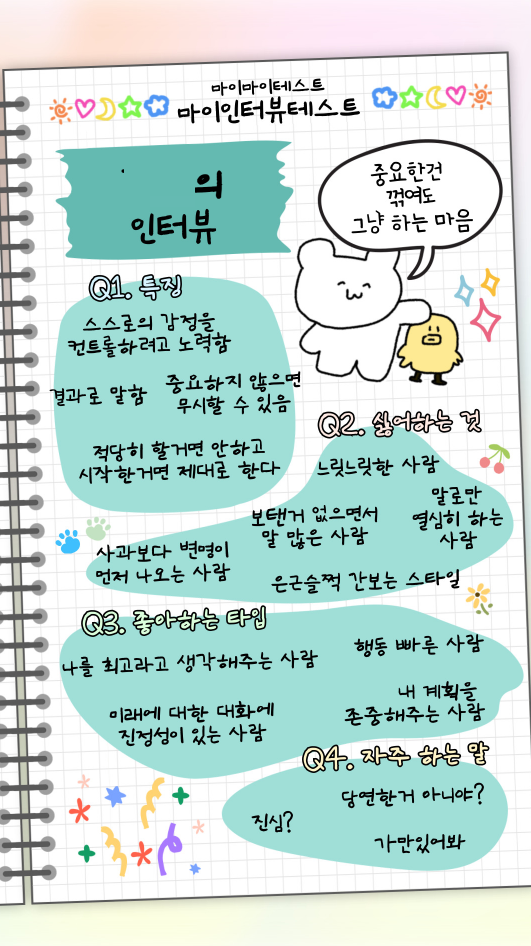 마이마이테스트
마이인터뷰테스트
의
인터뷰
중요한건
꺾여도
그냥 하는 마음
Q1. 특징
스스로의 감정을
컨트롤하려고 노력함
결과로 말함
중요하지 않으면
무시할 수 있음
적당히 할거면 안하고
시작한거면 제대로 한다
Q2. 싫어하는 것
느릿느릿한 사람
말로만
열심히 하는
사람
보탠거 없으면서
말 많은 사람
사과보다 변명이
먼저 나오는 사람
은근슬쩍 간보는 스타일
Q3. 좋아하는 타입
나를 최고라고 생각해주는 사람
행동 빠른 사람
내 계획을
존중해주는 사람
미래에 대한 대화에
진정성이 있는 사람
Q4. 자주 하는 말
당연한거 아니야?
진심?
가만있어봐